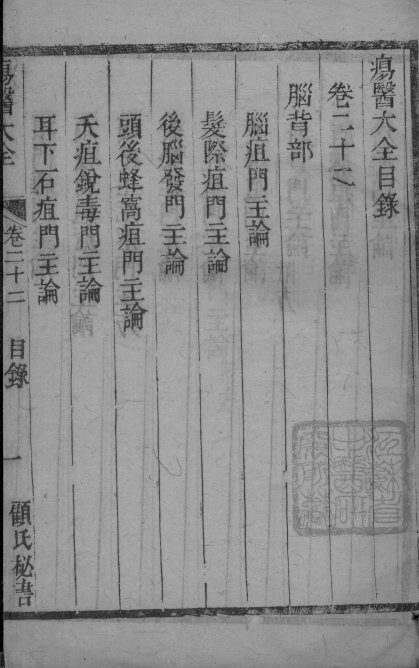 瘍醫大全目錄
卷二十二
腦背部
腦疽門主論
髮際疽門主論
後腦發門主論
頭後蜂窩疽門主論
夭疽銳毒門主論
耳下石疽門主論
瘍醫大全 卷二十二 目錄 一 顧氏秘書